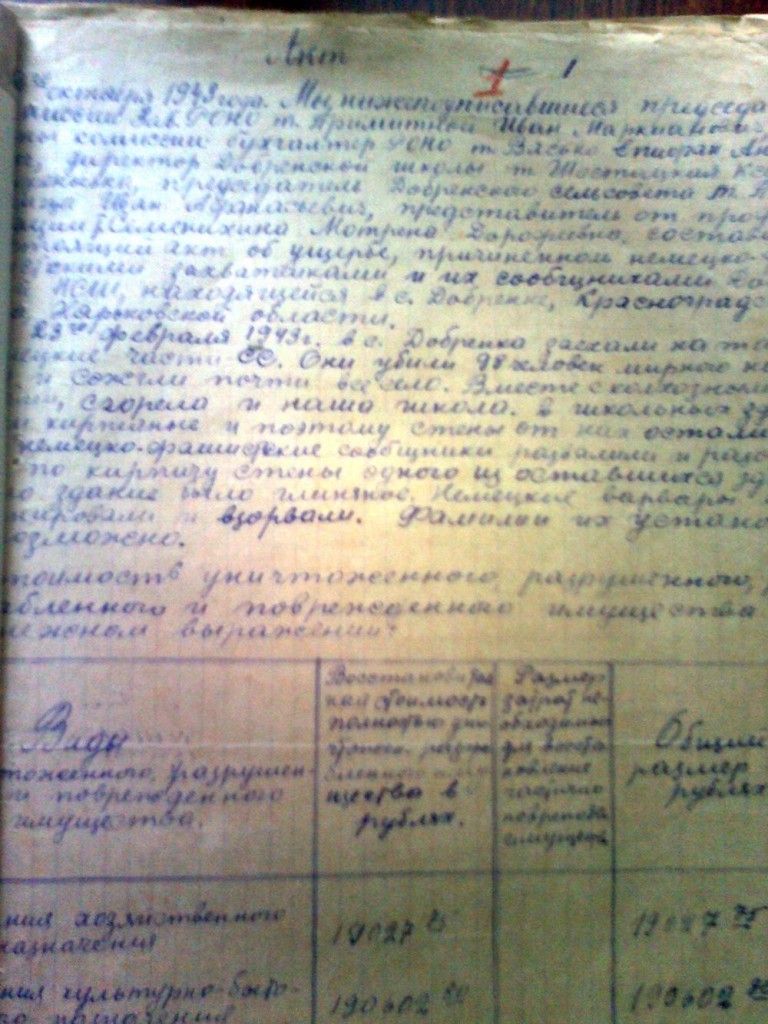 Акт
1 1
октября 1943 года. Мы нижеподписавшиеся председа
РОНО т. Примитной Иван Маркианович,
комиссии бухгалтер РОНО т. Васько Епифан Ан
директор Добренской школы т. Шостацкая Кс
председатель Добренского сельсовета т. П
Иван Афанасьевич, представитель от проф
Селенихина Мотрена Дорофеевна, состави
тоящий акт об ущербе, причиненном немецко-
скими захватчиками и их сообщниками До
НСШ, находящейся в с. Добренке, Красноградс
Харьковской области.
23го февраля 1943 г. в с. Добренка заехали на та
ецкие части СС. Они убили 98 человек мирного на
и сожгли почти все село. Вместе с колхозными
сгорела и наша школа. В школьных зд
кирпичные и поэтому стены от них остали
немецко-фашистские сообщники развалили и разо
по кирпичу стены одного из оставшихся зд
здание было глиняное. Немецкие варвары
ировали и взорвали. Фамилии их устано
озможено.
тоимость уничтоженного, разрушенного,
абленного и поврежденного имущества
нежном выражении:
Виды
тоженного, разрушен-
и поврежденного
имущества.
Восстановител
ной стоимость
полностью уни
чтожен. разра
бленного иму
щества в
рублях.
Размер
затрат не-
обходимых
для восста
новление
частично
поврежден
имуществ
Общий
размер
рублях
ния хозяйственного
назначения
19027 75
19027 75
ния культурно-быто-
го назначения
190602
190602